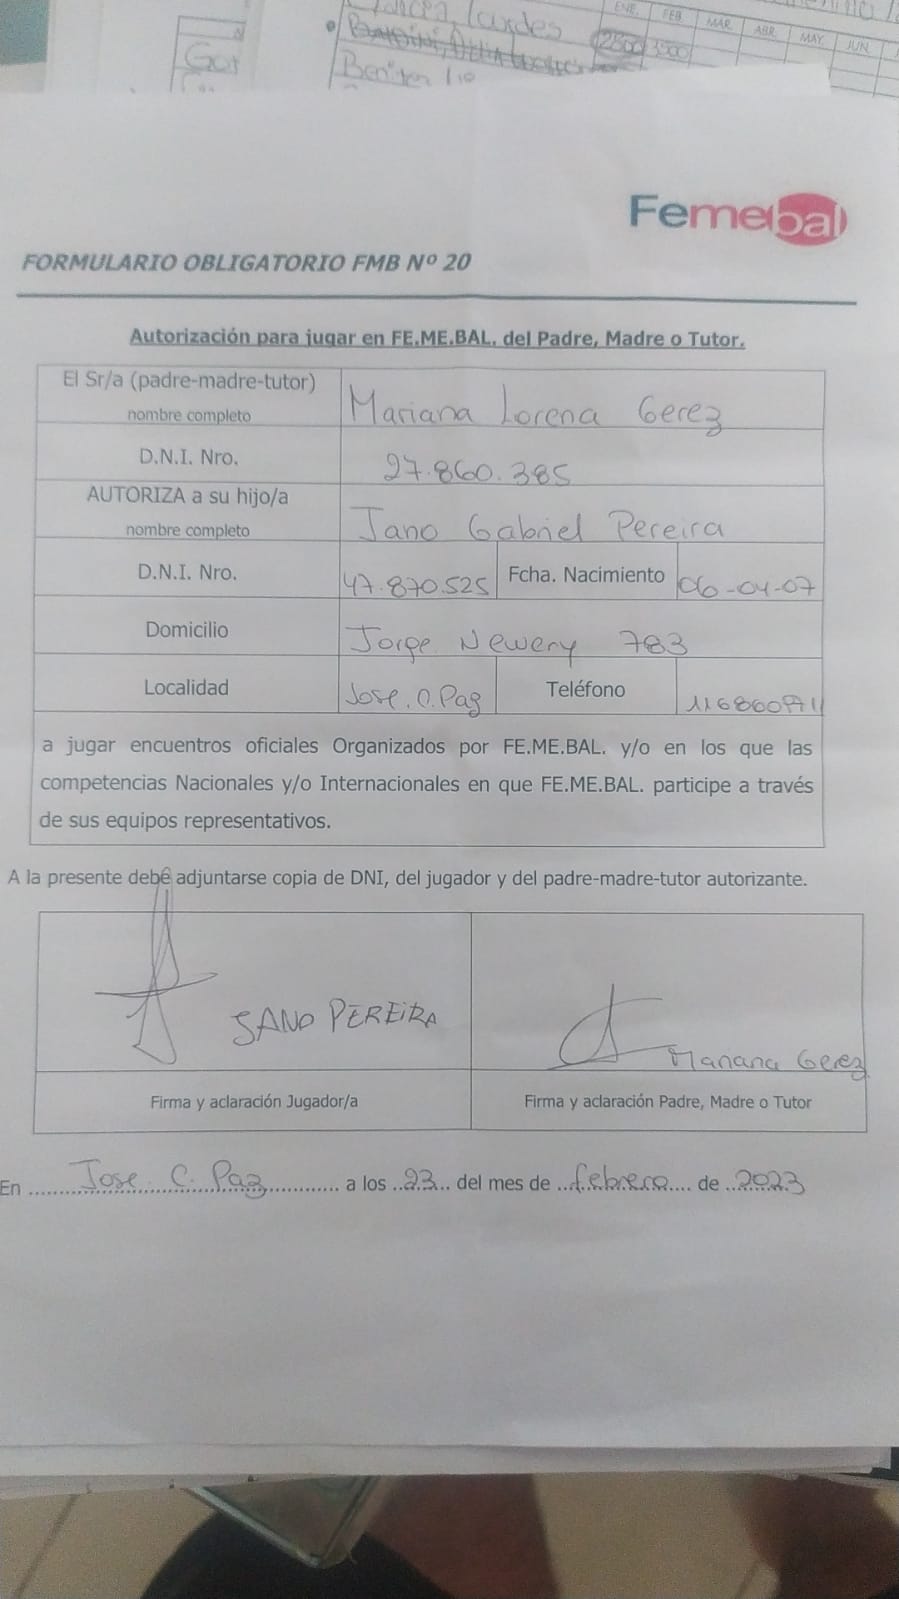 ENE. FEB. MAR. ABR. MAY. JUN.
2800 3500
Gar
Benitez
Femebal
FORMULARIO OBLIGATORIO FMB Nº 20
Autorización para jugar en FE.ME.BAL. del Padre, Madre o Tutor.
El Sr/a (padre-madre-tutor)
nombre completo
Mariana Lorena Gerez
D.N.I. Nro. 27.860.385
AUTORIZA a su hijo/a
nombre completo
Jano Gabriel Pereira
D.N.I. Nro. 47.870.525 Fcha. Nacimiento 06-04-07
Domicilio Jorge Newery 783
Localidad Jose.C.Paz Teléfono
a jugar encuentros oficiales Organizados por FE.ME.BAL. y/o en los que las
competencias Nacionales y/o Internacionales en que FE.ME.BAL. participe a través
de sus equipos representativos.
A la presente debe adjuntarse copia de DNI, del jugador y del padre-madre-tutor autorizante.
JANO PEREIRA
Mariana Gerez
Firma y aclaración Jugador/a Firma y aclaración Padre, Madre o Tutor
En Jose C. Paz a los 23 del mes de febrero de 2023